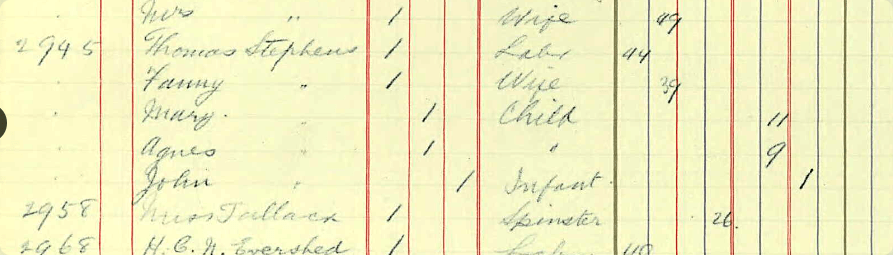 Mrs " 1 Wife 49
2945 Thomas Stephens 1 Labr 44
. Fanny " 1 Wife 39
. Mary " 1 Child 11
. Agnes " 1 " 9
. John " 1 Infant 1
2958 Miss Tallack 1 Spinster 26
2968 H. C. N. Evershed 1 40